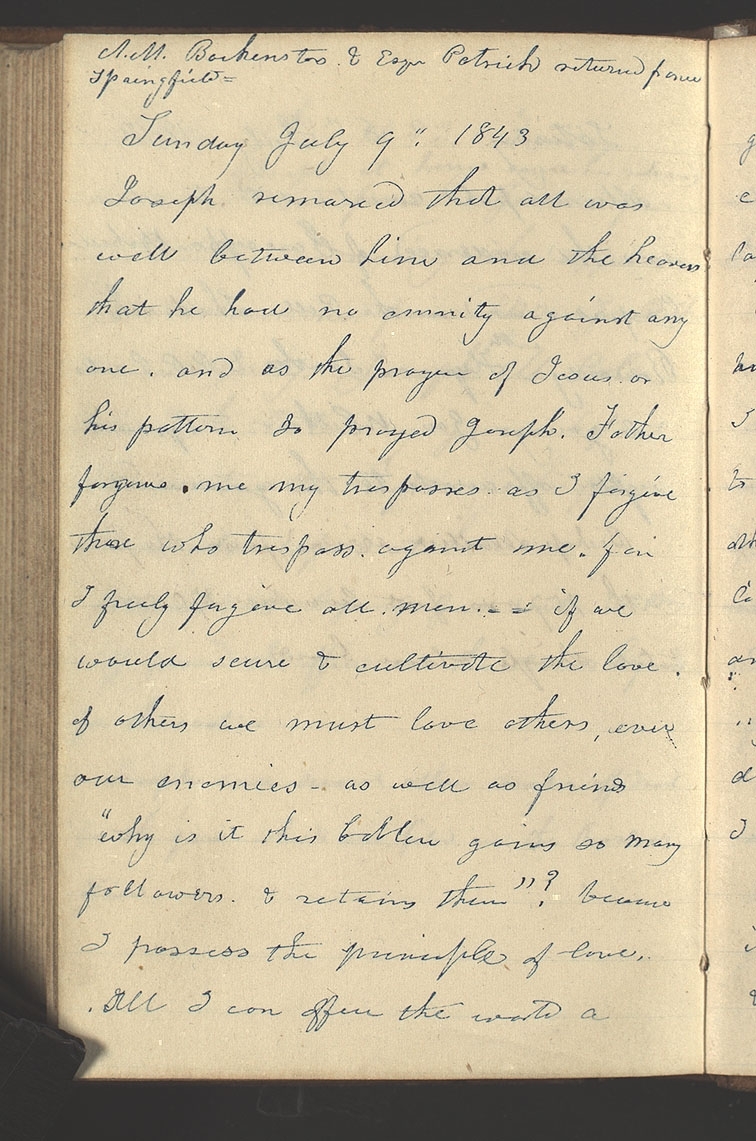 A. M. Backenstos. & Esqr Patrick returned from
Springfield=
Sunday July 9". 1843
Joseph. remarked that all was
well between him and the heavens
that he had no enmity against any
one. and as the prayer of Jesus. or
his pattern so prayed Joseph. Father
forgive. me my trespasses. as I forgive
those who trespass. against me. for
I freely forgive all. men.- = if we
would secure & cultivate the love.
of others we must love others, even
our enemies - as well as friends
"why is it this babler gains so many
followers. & retains them"? because
I possess the principle of love.
. All I can offer the world a